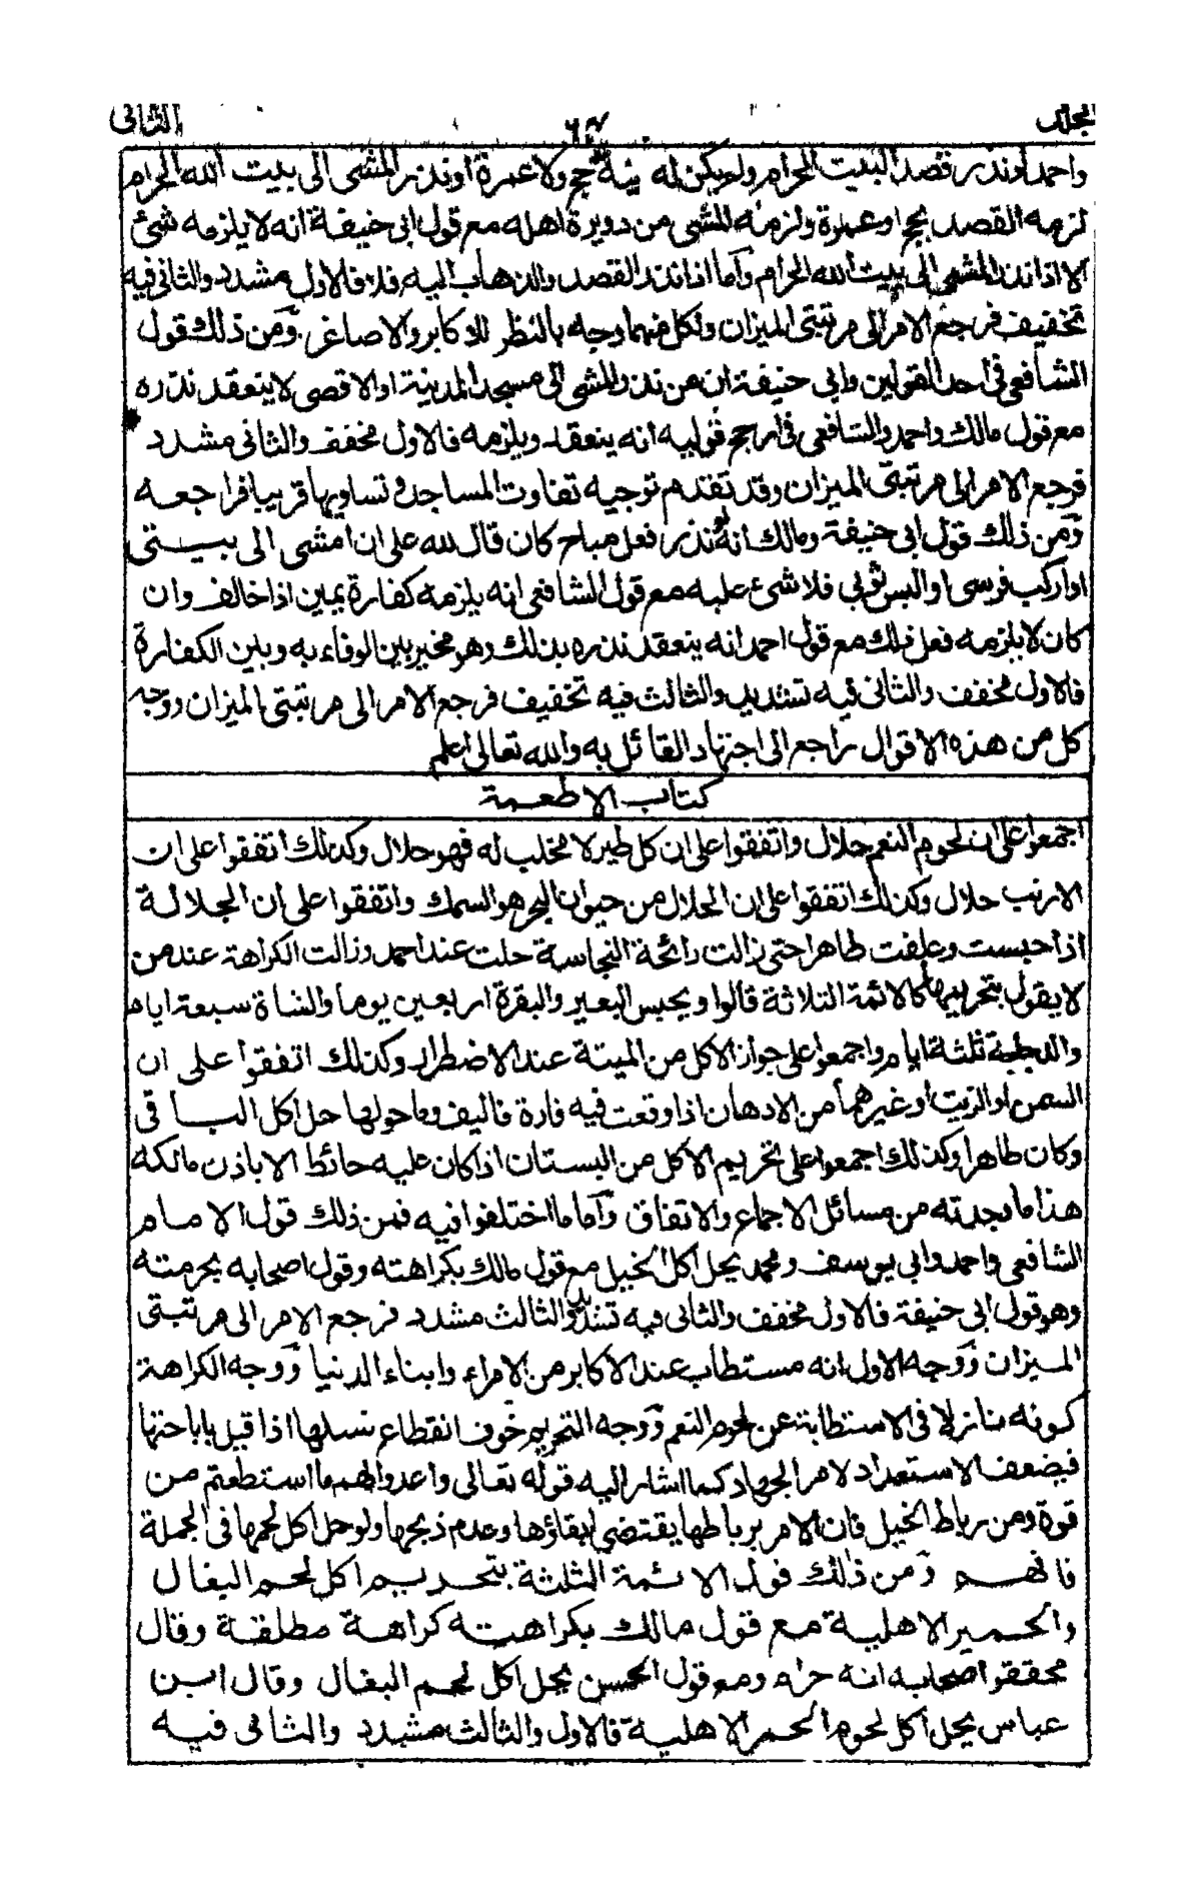 المجلد
٦٧
الثاني
واحمد او نذر قصد البيت الحرام ولم يكن له نية حج ولا عمرة او نذر المشى الى بيت الله الحرام
لزمه القصد بحج او عمرة ولزمه المشى من دويرة اهله مع قول ابى حنيفة انه لا يلزمه شئ
الا اذا نذر المشى الى بيت الله الحرام واما اذا نذر القصد والذهاب اليه فلا فالاول مشدد والثانى فيه
تخفيف فرجع الامر الى مرتبتى الميزان ولكل منهما وجه بالنظر للاكابر والاصاغر ومن ذلك قول
الشافعى فى احد القولين وابى حنيفة ان من نذر المشى الى مسجد المدينة او الاقصى لا ينعقد نذره
مع قول مالك واحمد والشافعى فى ارجح قوليه انه ينعقد ويلزمه فالاول مخفف والثانى مشدد
فرجع الامر الى مرتبتى الميزان وقد تقدم توجيه تفاوت المساجد وتساويها قريبا فراجعه
ومن ذلك قول ابى حنيفة ومالك انه لو نذر فعل مباح كان قال لله على ان امشى الى بيتى
او اركب فرسى او البس ثوبى فلا شئ عليه مع قول الشافعى انه يلزمه كفارة يمين اذا خالف وان
كان لا يلزمه فعل ذلك مع قول احمد انه ينعقد نذره بذلك وهو مخير بين الوفاء به وبين الكفارة
فالاول مخفف والثانى فيه تشديد والثالث فيه تخفيف فرجع الامر الى مرتبتى الميزان ووجه
كل من هذه الاقوال راجع الى اجتهاد القائل به والله تعالى اعلم
كتاب الاطعمة
اجمعوا على ان لحوم النعم حلال واتفقوا على ان كل طير لا مخلب له فهو حلال وكذلك اتفقوا على ان
الارنب حلال وكذلك اتفقوا على ان الحلال من حيوان البحر هو السمك واتفقوا على ان الجلالة
اذا حبست وعلفت طاهرا حتى زالت رائحة النجاسة حلت عند احمد وزالت الكراهة عند من
لا يقول بتحريمها كالائمة الثلاثة قالوا ويحبس البعير والبقرة اربعين يوما والشاة سبعة ايام
والدجاجة ثلثة ايام واجمعوا على جواز الاكل من الميتة عند الاضطرار وكذلك اتفقوا على ان
السمن او الزيت او غيرهما من الادهان اذا وقعت فيه فارة فاليف وما حولها حل اكل الباقى
وكان طاهرا وكذلك اجمعوا على تحريم الاكل من البستان اذا كان عليه حائط الا باذن مالكه
هذا ما وجدته من مسائل الاجماع والاتفاق واما ما اختلفوا فيه فمن ذلك قول الامام
الشافعى واحمد وابى يوسف ومحمد يحل اكل الخيل مع قول مالك بكراهته وقول اصحابه بحرمته
وهو قول ابى حنيفة فالاول مخفف والثانى فيه تشديد والثالث مشدد فرجع الامر الى مرتبتى
الميزان ووجه الاول انه مستطاب عند الاكابر من الامراء وابناء الدنيا ووجه الكراهة
كونه نازلا فى الاستطابة عن لحوم النعم ووجه التحريم خوف انقطاع نسلها اذا قيل باباحتها
فيضعف الاستعداد لامر الجهاد كما اشار اليه قوله تعالى واعدوا لهم ما استطعتم من
قوة ومن رباط الخيل فان الامر برباطها يقتضى ابقاؤها وعدم ذبحها ولو حل اكل لحمها فى الجملة
فافهم ومن ذلك قول الائمة الثلثة بتحريم اكل لحم البغال
والحمير الاهلية مع قول مالك بكراهته كراهة مطلقة وقال
محققو اصحابه انه حرام ومع قول الحسن يحل اكل لحم البغال وقال ابن
عباس يحل اكل لحوم الحمر الاهلية فالاول والثالث مشدد والثانى فيه